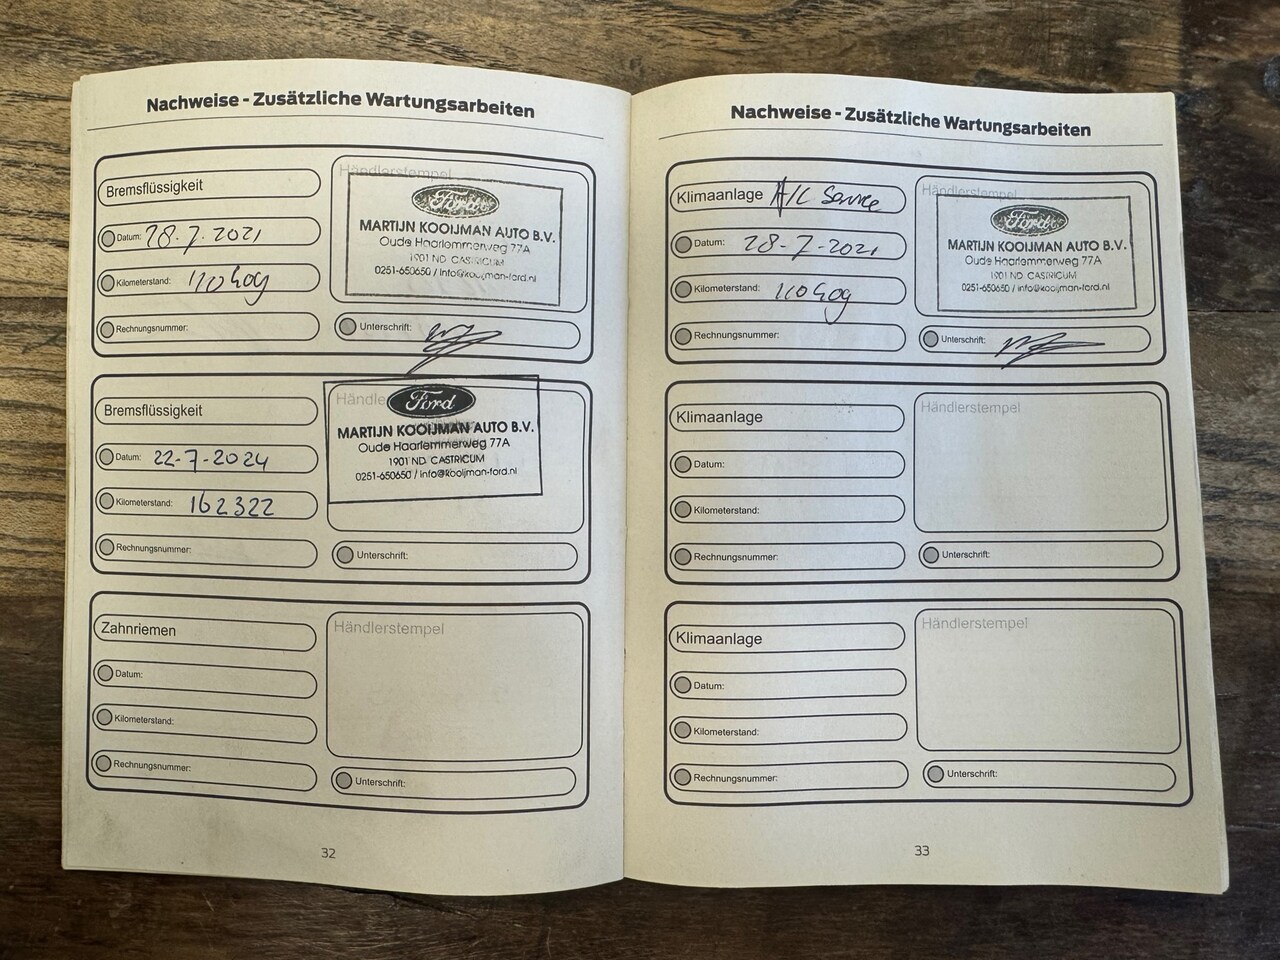 Nachweise - Zusätzliche Wartungsarbeiten
Bremsflüssigkeit
Datum: 28-7-2021
Kilometerstand: 110409
Rechnungsnummer:
Händlerstempel
Ford
MARTIJN KOOIJMAN AUTO B.V.
Oude Haarlemmerweg 77A
1901 ND CASTRICUM
0251-650650 / info@kooijman-ford.nl
Unterschrift:
Bremsflüssigkeit
Datum: 22-7-2024
Kilometerstand: 162322
Rechnungsnummer:
Ford
MARTIJN KOOIJMAN AUTO B.V.
Oude Haarlemmerweg 77A
1901 ND CASTRICUM
0251-650650 / info@kooijman-ford.nl
Unterschrift:
Zahnriemen
Datum:
Kilometerstand:
Rechnungsnummer:
Händlerstempel
Unterschrift:
32
Nachweise - Zusätzliche Wartungsarbeiten
Klimaanlage A/C Service
Datum: 28-7-2021
Kilometerstand: 110409
Rechnungsnummer:
Händlerstempel
Ford
MARTIJN KOOIJMAN AUTO B.V.
Oude Haarlemmerweg 77A
1901 ND CASTRICUM
0251-650650 / info@kooijman-ford.nl
Unterschrift:
Klimaanlage
Datum:
Kilometerstand:
Rechnungsnummer:
Händlerstempel
Unterschrift:
Klimaanlage
Datum:
Kilometerstand:
Rechnungsnummer:
Händlerstempel
Unterschrift:
33